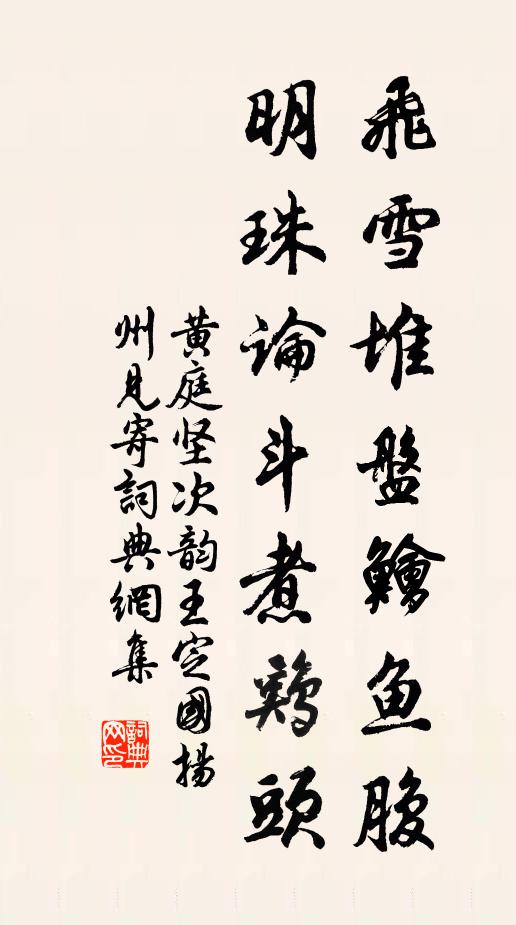 飛雪堆盤鱠魚腹
明珠論斗煮鷄頭
黃庭坚次韵王定國揚
州見寄詞典網集
詞典
网印